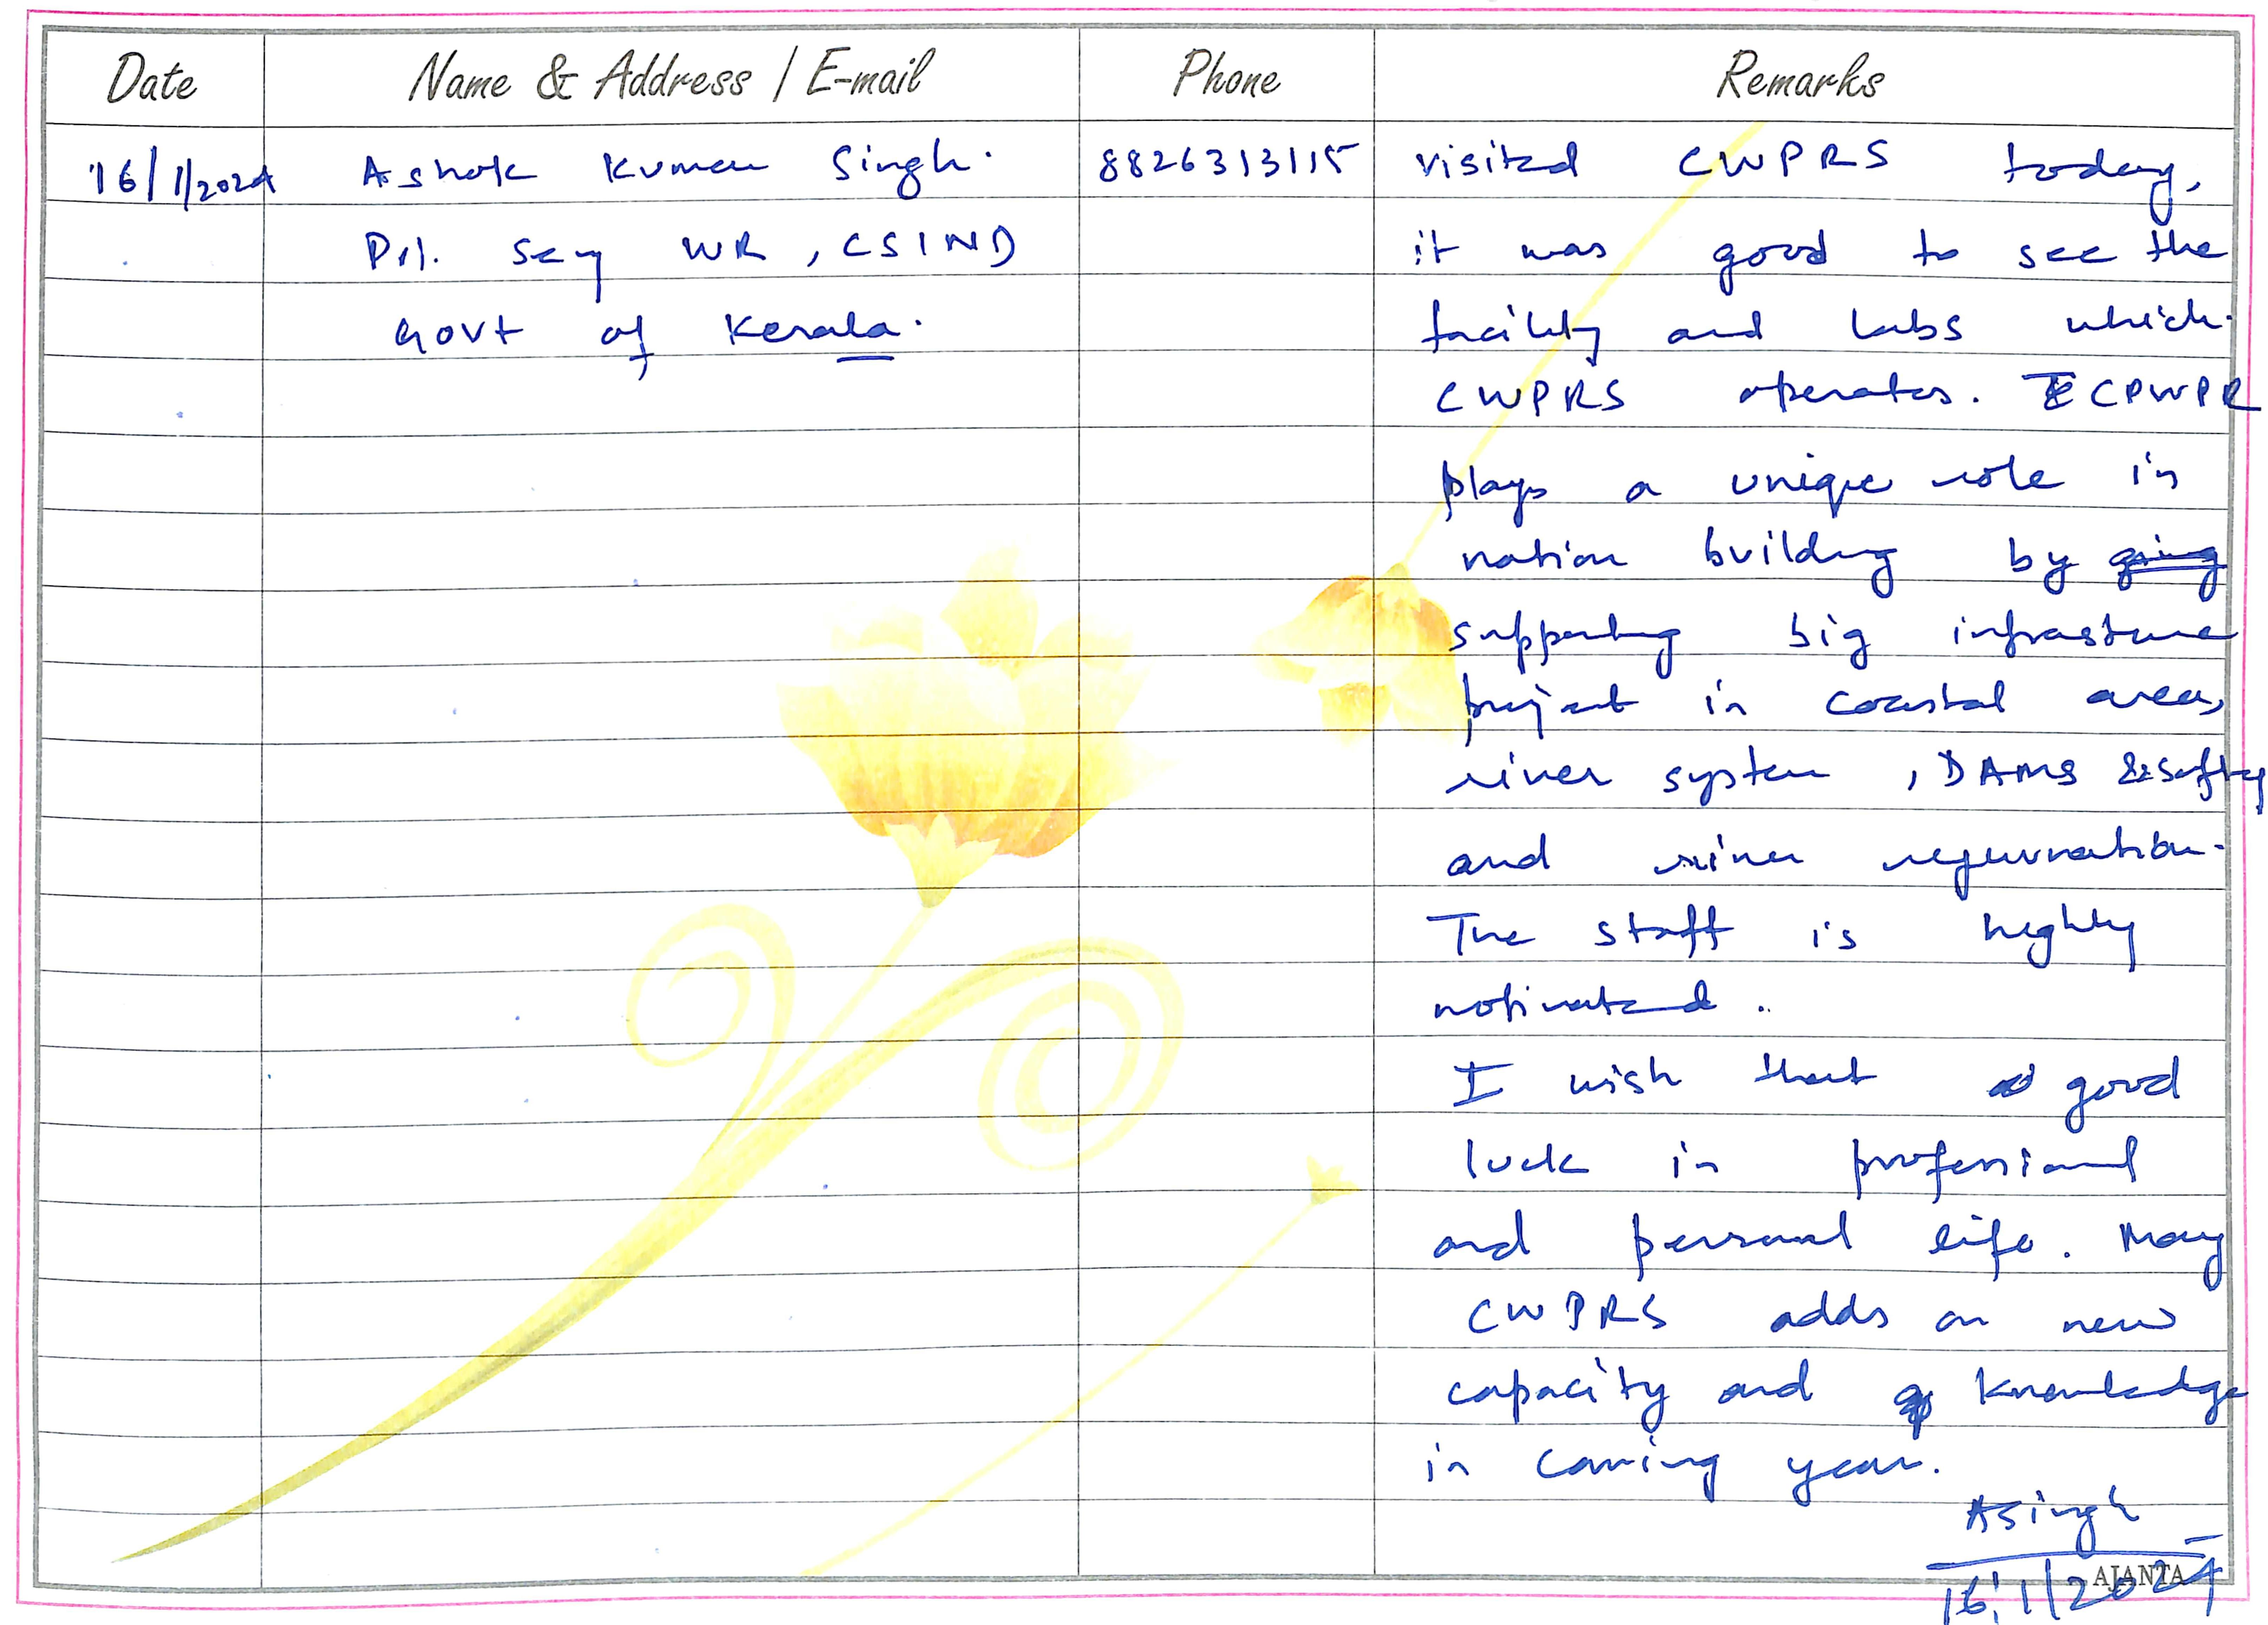 Date Name & Address / E-mail Phone Remarks
16/1/2024 Ashok Kumar Singh. 8826313115 visited CWPRS today,
Prl. Secy WR, CSIND it was good to see the
Govt of Kerala. facility and labs which
CWPRS operates. CPWPR
plays a unique role in
nation building by
supporting big infrasture
project in coastal area,
river system, DAMS & Safty
and river rejuvnation.
The staff is highly
motivated.
I wish that good
luck in professional
and personal life. May
CWPRS adds on new
capacity and knowledge
in coming year.
ASingh
16/1/2024
AJANTA